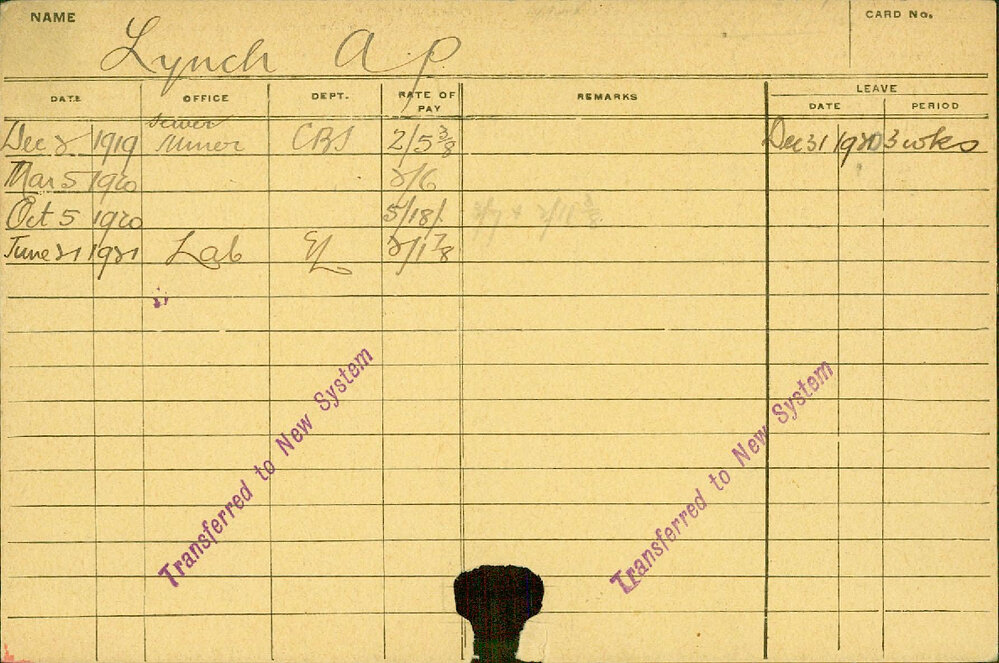 NAME
CARD No.
Lynch A P
DATE OFFICE DEPT. RATE OF PAY REMARKS LEAVE
DATE PERIOD
Sewer
Dec 2 1919 Miner CBS 2/5 3/8 Dec 31 1920 3 wks
Mar 5 1920 2/6
Oct 5 1920 5/18/
June 21 1921 Lab 2/1 7/8
Transferred to New System
Transferred to New System